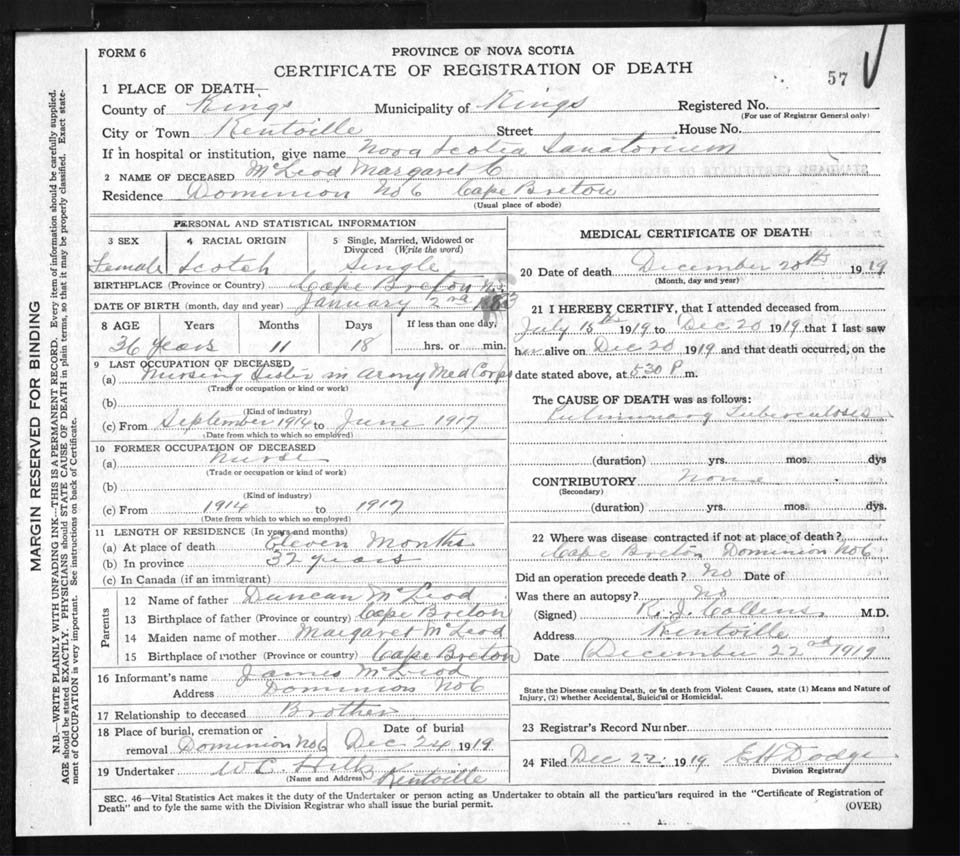 FORM 6
PROVINCE OF NOVA SCOTIA
CERTIFICATE OF REGISTRATION OF DEATH
57
1 PLACE OF DEATH—
County of Kings Municipality of Kings Registered No.
(For use of Registrar General only)
City or Town Kentville Street House No.
If in hospital or institution, give name Nova Scotia Sanatorium
2 NAME OF DECEASED McLeod Margaret C
Residence Dominion No 6 Cape Breton
(Usual place of abode)
PERSONAL AND STATISTICAL INFORMATION
3 SEX 4 RACIAL ORIGIN 5 Single, Married, Widowed or Divorced (Write the word)
Female Scotch Single
BIRTHPLACE (Province or Country) Cape Breton N.S.
DATE OF BIRTH (month, day and year) January 2nd 1883
8 AGE Years Months Days If less than one day,
36 years 11 18 hrs. or min.
9 LAST OCCUPATION OF DECEASED
(a) Nursing Sister in Army Med Corps
(Trade or occupation or kind or work)
(b)
(Kind of industry)
(c) From September 1914 to June 1917
(Date from which to which so employed)
10 FORMER OCCUPATION OF DECEASED
(a) Nurse
(Trade or occupation or kind of work)
(b)
(Kind of industry)
(c) From 1914 to 1917
(Date from which to which so employed)
11 LENGTH OF RESIDENCE (In years and months)
(a) At place of death Eleven Months
(b) In province 32 years
(c) In Canada (if an immigrant)
Parents
12 Name of father Duncan McLeod
13 Birthplace of father (Province or country) Cape Breton
14 Maiden name of mother Margaret McLeod
15 Birthplace of mother (Province or country) Cape Breton
16 Informant's name James McLeod
Address Dominion No 6
17 Relationship to deceased Brother
18 Place of burial, cremation or removal Dominion No 6 Date of burial Dec 24 1919
19 Undertaker W C Hiltz Kentville
(Name and Address)
MEDICAL CERTIFICATE OF DEATH
20 Date of death December 20th 1919
(Month, day and year)
21 I HEREBY CERTIFY, that I attended deceased from
July 15th 1919 to Dec 20 1919 that I last saw
her alive on Dec 20 1919 and that death occurred, on the
date stated above, at 5 30 P m.
The CAUSE OF DEATH was as follows:
Pulmonary Tuberculosis
(duration) yrs. mos. dys
CONTRIBUTORY None
(Secondary)
(duration) yrs. mos. dys.
22 Where was disease contracted if not at place of death?
Cape Breton Dominion No 6
Did an operation precede death? No Date of
Was there an autopsy? No
(Signed) R. J. Collins M.D.
Address Kentville
Date December 22nd 1919
State the Disease causing Death, or in death from Violent Causes, state (1) Means and Nature of
Injury, (2) whether Accidental, Suicidal or Homicidal.
23 Registrar's Record Number
24 Filed Dec 22 1919 E H Dodge
Division Registrar
SEC. 46—Vital Statistics Act makes it the duty of the Undertaker or person acting as Undertaker to obtain all the particulars required in the "Certificate of Registration of
Death" and to fyle the same with the Division Registrar who shall issue the burial permit.
(OVER)
MARGIN RESERVED FOR BINDING
N.B.—WRITE PLAINLY WITH UNFADING INK—THIS IS A PERMANENT RECORD. Every item of information should be carefully supplied.
AGE should be stated EXACTLY. PHYSICIANS should STATE CAUSE OF DEATH in plain terms, so that it may be properly classified. Exact state-
ment of OCCUPATION is very important. See instructions on back of Certificate.